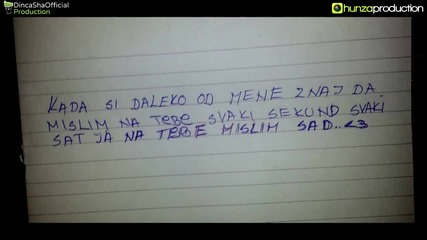 DincaShaOfficial
Production
hunzaproduction
KADA SI DALEKO OD MENE ZNAJ DA.
MISLIM NA TEBE SVAKI SEKUND SVAKI
SAT JA NA TEBE MISLIM SAD..<3